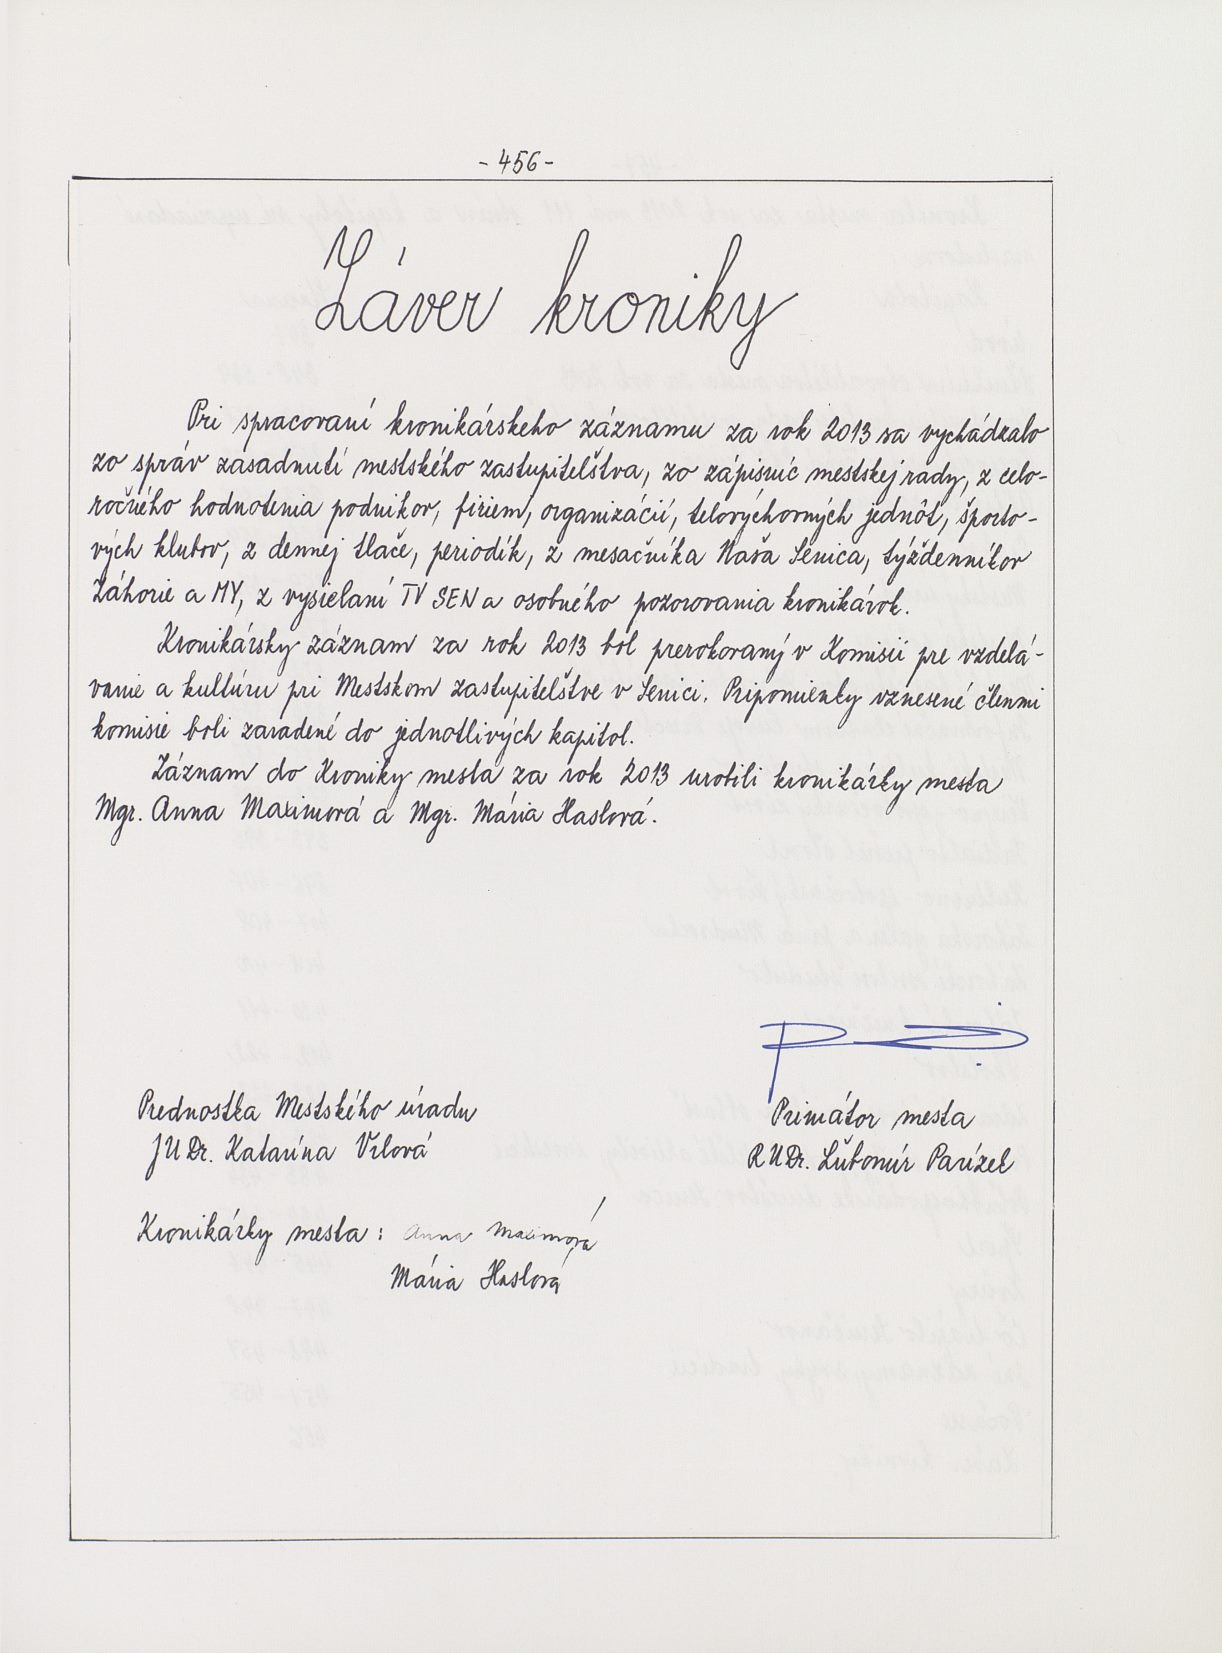 - 456 -
Záver kroniky
Pri spracovaní kronikárskeho záznamu za rok 2013 sa vychádzalo
zo správ zasadnutí mestského zastupiteľstva, zo zápisníc mestskej rady, z celo-
ročného hodnotenia podnikov, firiem, organizácií, telovýchovných jednôt, športo-
vých klubov, z dennej tlače, periodík, z mesačníka Naša Senica, týždenníkov
Záhorie a MY, z vysielaní TV SEN a osobného pozorovania kronikárok.
Kronikársky záznam za rok 2013 bol prerokovaný v Komisii pre vzdelá-
vanie a kultúru pri Mestskom zastupiteľstve v Senici. Pripomienky vznesené členmi
komisie boli zaradené do jednotlivých kapitol.
Záznam do Kroniky mesta za rok 2013 urobili kronikárky mesta
Mgr. Anna Maximová a Mgr. Mária Haslová.
Prednostka Mestského úradu
JUDr. Katarína Vrlová
Primátor mesta
RNDr. Ľubomír Parízek
Kronikárky mesta: Anna Maximová
Mária Haslová